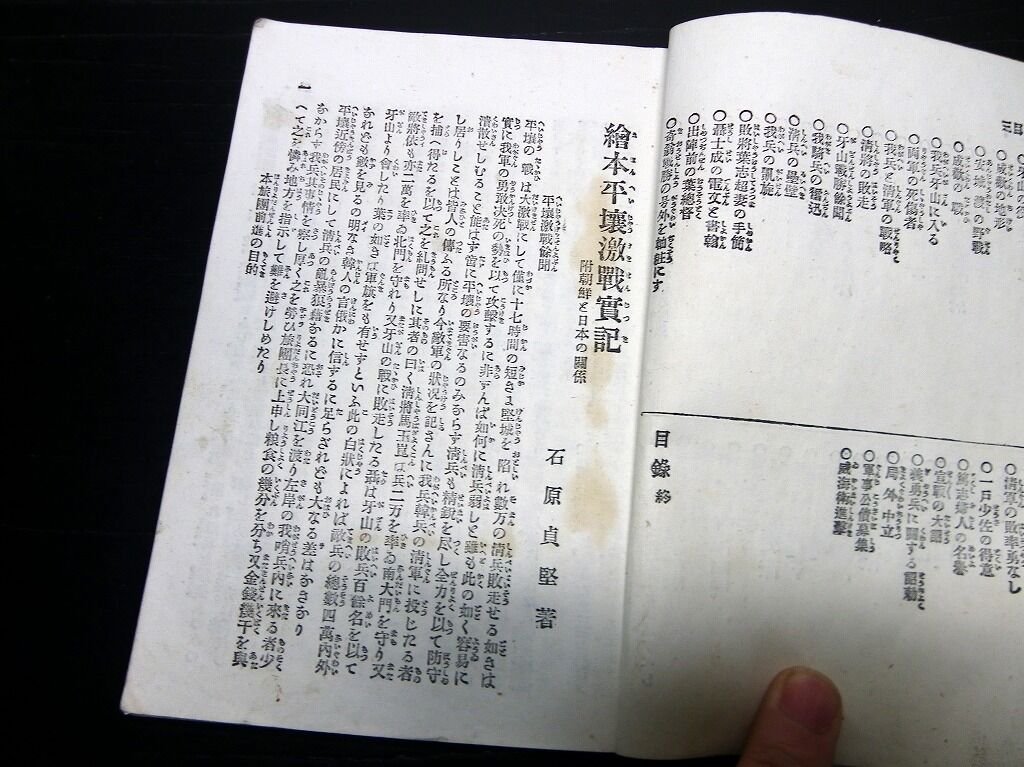 目
三
○成歡の地形
○安城渡の野戰
○成歡の戰
○我兵牙山に入る
○兩軍の死傷者
○我兵と清軍の戰略
○牙山戰勝餘聞
○清將の敗走
○我騎兵の奮迅
○清兵の壘壁
○我兵の凱旋
○敗將葉志超妻の手簡
○聶士成の電文と書翰
○出陣前の葉總督
○清軍の敗率勇なし
○一日少佐の得意
○篤志婦人の名譽
○宣戰の大詔
○義勇兵に關する詔勅
○局外中立
○軍事公債募集
○威海衛進擊
目錄終
繪本平壤激戰實記
附朝鮮と日本の關係
石原貞堅著
平壤激戰餘聞
平壤の戰は大激戰にして僅に十七時間の短きま堅城を陷れ數万の清兵敗走せる如きは
實に我軍の勇敢决死の勢を以て攻擊するに非ずんば如何に清兵弱しと雖も此の如く容易に
潰散せしむること能はず當に平壤の要害なるのみならす清兵も精銳を尽し全力を以て防守
し居りしことは皆人の傳ふる所なり今敵軍の狀况を記さんに我兵韓兵の清軍に投じたる者
を捕へ得たるを以て之を糺問せしに其者の曰く清將馬玉崑は兵二万を率ゐ南大門を守り又
敵將依も亦二萬を率ゐ北門を守れり又牙山の戰に敗走したる聶は牙山の敗兵百餘名を以て
牙山より會したり葉の如きは軍旗をも有せすといふ此の白狀によれば敵兵の總數四萬內外
なれども數を見るの明なき韓人の言俄かに信ずるに足らざれども大なる差はなきなり
平壤近傍の居民にして清兵の亂暴狼藉なるに恐れ大同江を渡り左岸の我哨兵內に來る者少
なからす我兵其事情を察し厚く之を勞ひ旅團長に上申し粮食の幾分を分ち又金錢幾干を與
へて之を憐み地方を指示して難を避けしめたり
本旅團前進の目的
一